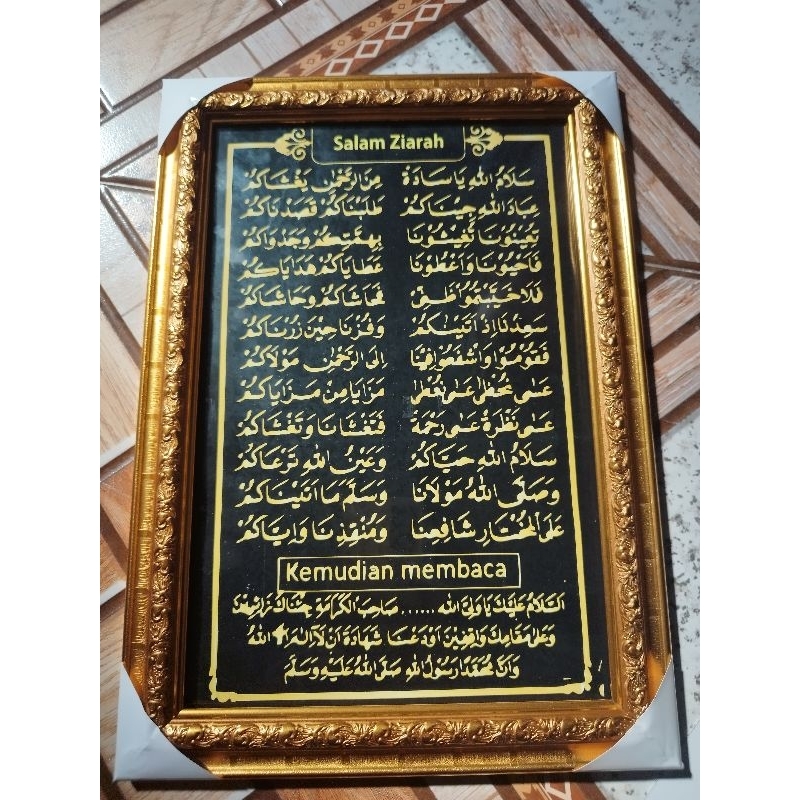 Salam Ziarah
سَلَامُ اللهِ يَا سَادَةْ مِنَ الرَّحْمٰنِ يَغْشَاكُمْ
عِبَادَ اللهِ جِيْنَاكُمْ طَلَبْنَاكُمْ قَصَدْنَاكُمْ
تُعِيْنُوْنَا تُغِيْثُوْنَا بِهِمَّتِكُمْ وَجَدْوَاكُمْ
فَاَحْيُوْنَا وَاَعْطُوْنَا عَطَايَاكُمْ هَدَايَاكُمْ
فَلَا خَيَّبْتُمُوْا ظَنِّيْ فَحَاشَاكُمْ وَحَاشَاكُمْ
سَعِدْنَا اِذْ اَتَيْنَاكُمْ وَفُزْنَا حِيْنَ زُرْنَاكُمْ
فَقُوْمُوْا وَاشْفَعُوْا فِيْنَا اِلَى الرَّحْمٰنِ مَوْلَاكُمْ
عَسٰى نُحْظٰى عَسٰى نُعْطٰى مَزَايَا مِنْ مَزَايَاكُمْ
عَسٰى نَظْرَةْ عَسٰى رَحْمَةْ فَتَغْشَانَا وَتَغْشَاكُمْ
سَلَامُ اللهِ حَيَّاكُمْ وَعَيْنُ اللهِ تَرْعَاكُمْ
وَصَلَّى اللهُ مَوْلَانَا وَسَلَّمْ مَا اَتَيْنَاكُمْ
عَلَى الْمُخْتَارِ شَافِعِنَا وَمُنْقِذِنَا وَاِيَّاكُمْ
Kemudian membaca
اَلسَّلَامُ عَلَيْكَ يَا وَلِيَّ اللهِ ...... صَاحِبَ الْكَرَامَةِ جِئْنَاكَ
وَعَلَى مَقَامِكَ وَاقِفِيْنَ اَوْدَعْنَا شَهَادَةَ اَنْ لَا اِلٰهَ اِلَّا اللهُ
وَاَنَّ مُحَمَّدًا رَسُوْلُ اللهِ صَلَّى اللهُ عَلَيْهِ وَسَلَّمَ